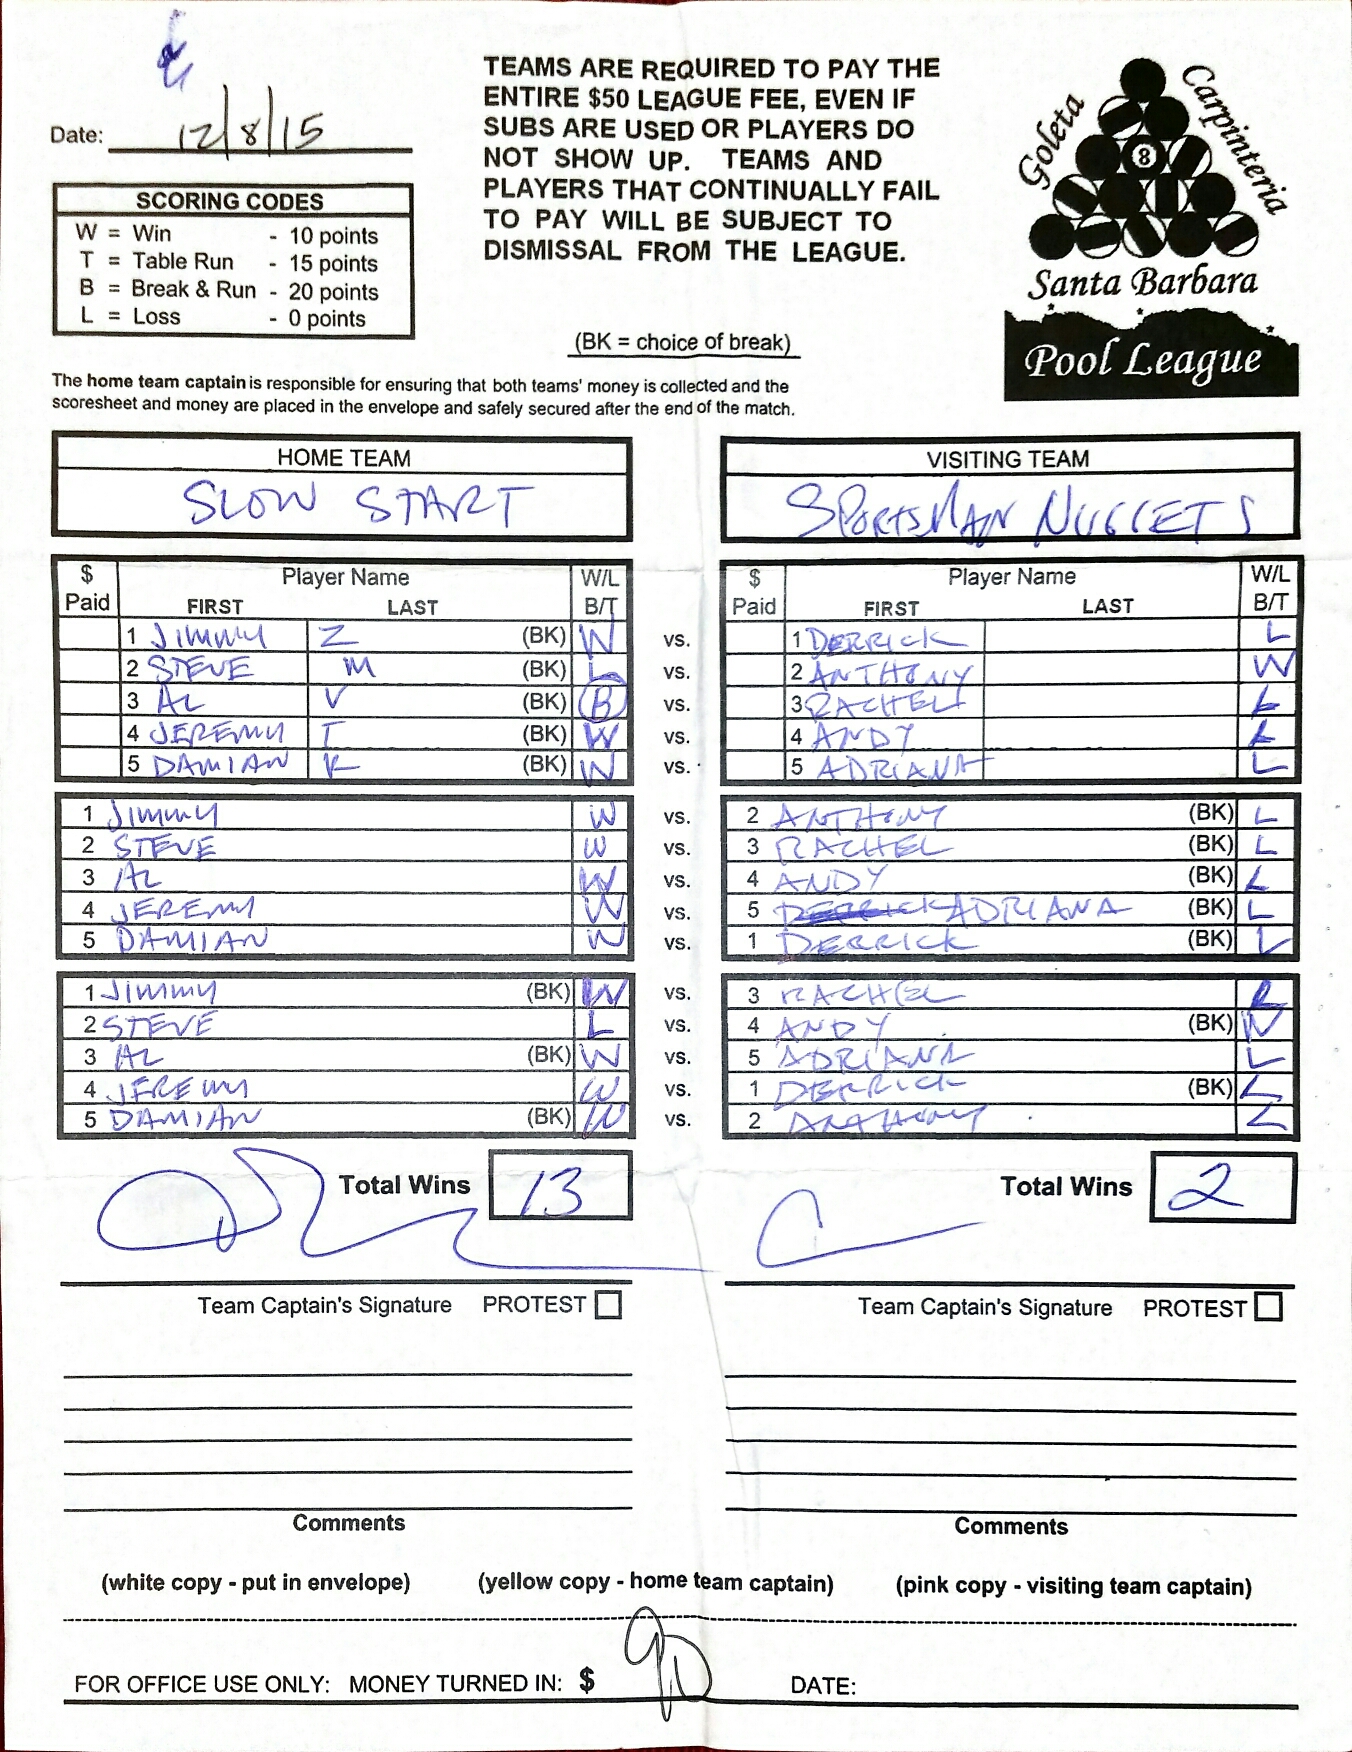 Date: 12/8/15
SCORING CODES
W = Win - 10 points
T = Table Run - 15 points
B = Break & Run - 20 points
L = Loss - 0 points
TEAMS ARE REQUIRED TO PAY THE
ENTIRE $50 LEAGUE FEE, EVEN IF
SUBS ARE USED OR PLAYERS DO
NOT SHOW UP. TEAMS AND
PLAYERS THAT CONTINUALLY FAIL
TO PAY WILL BE SUBJECT TO
DISMISSAL FROM THE LEAGUE.
(BK = choice of break)
Goleta
Carpinteria
8
Santa Barbara
Pool League
The home team captain is responsible for ensuring that both teams' money is collected and the
scoresheet and money are placed in the envelope and safely secured after the end of the match.
HOME TEAM VISITING TEAM
SLOW START SPORTSMAN NUGGETS
$ Paid Player Name FIRST LAST W/L B/T $ Paid Player Name FIRST LAST W/L B/T
1 JIMMY Z (BK) W vs. 1 DERRICK L
2 STEVE M (BK) L vs. 2 ANTHONY W
3 AL V (BK) B vs. 3 RACHEL L
4 JEREMY T (BK) W vs. 4 ANDY L
5 DAMIAN K (BK) W vs. 5 ADRIANA L
1 JIMMY W vs. 2 ANTHONY (BK) L
2 STEVE W vs. 3 RACHEL (BK) L
3 AL W vs. 4 ANDY (BK) L
4 JEREMY W vs. 5 ADRIANA (BK) L
5 DAMIAN W vs. 1 DERRICK (BK) L
1 JIMMY (BK) W vs. 3 RACHEL
2 STEVE L vs. 4 ANDY (BK) W
3 AL (BK) W vs. 5 ADRIANA L
4 JEREMY W vs. 1 DERRICK (BK) L
5 DAMIAN (BK) W vs. 2 ANTHONY L
Total Wins 13 Total Wins 2
Team Captain's Signature PROTEST Team Captain's Signature PROTEST
Comments Comments
(white copy - put in envelope) (yellow copy - home team captain) (pink copy - visiting team captain)
FOR OFFICE USE ONLY: MONEY TURNED IN: $ DATE: